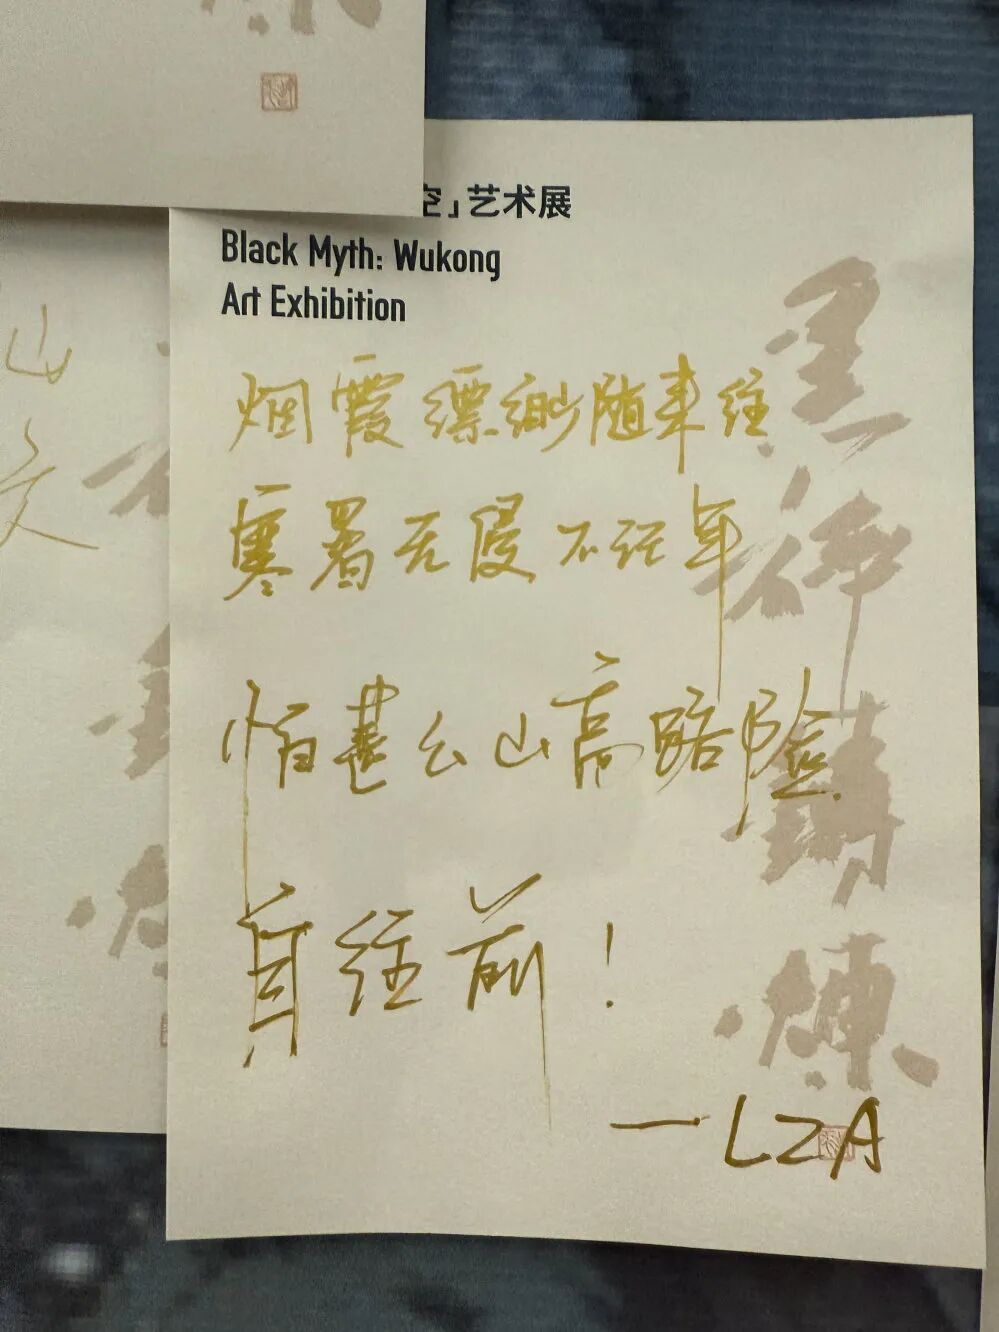 空」艺术展
Black Myth: Wukong
Art Exhibition
烟霞缥缈随来往
寒暑无侵不记年
怕甚么山高路险
自往前!
—LZA
黑神鑄煉
山